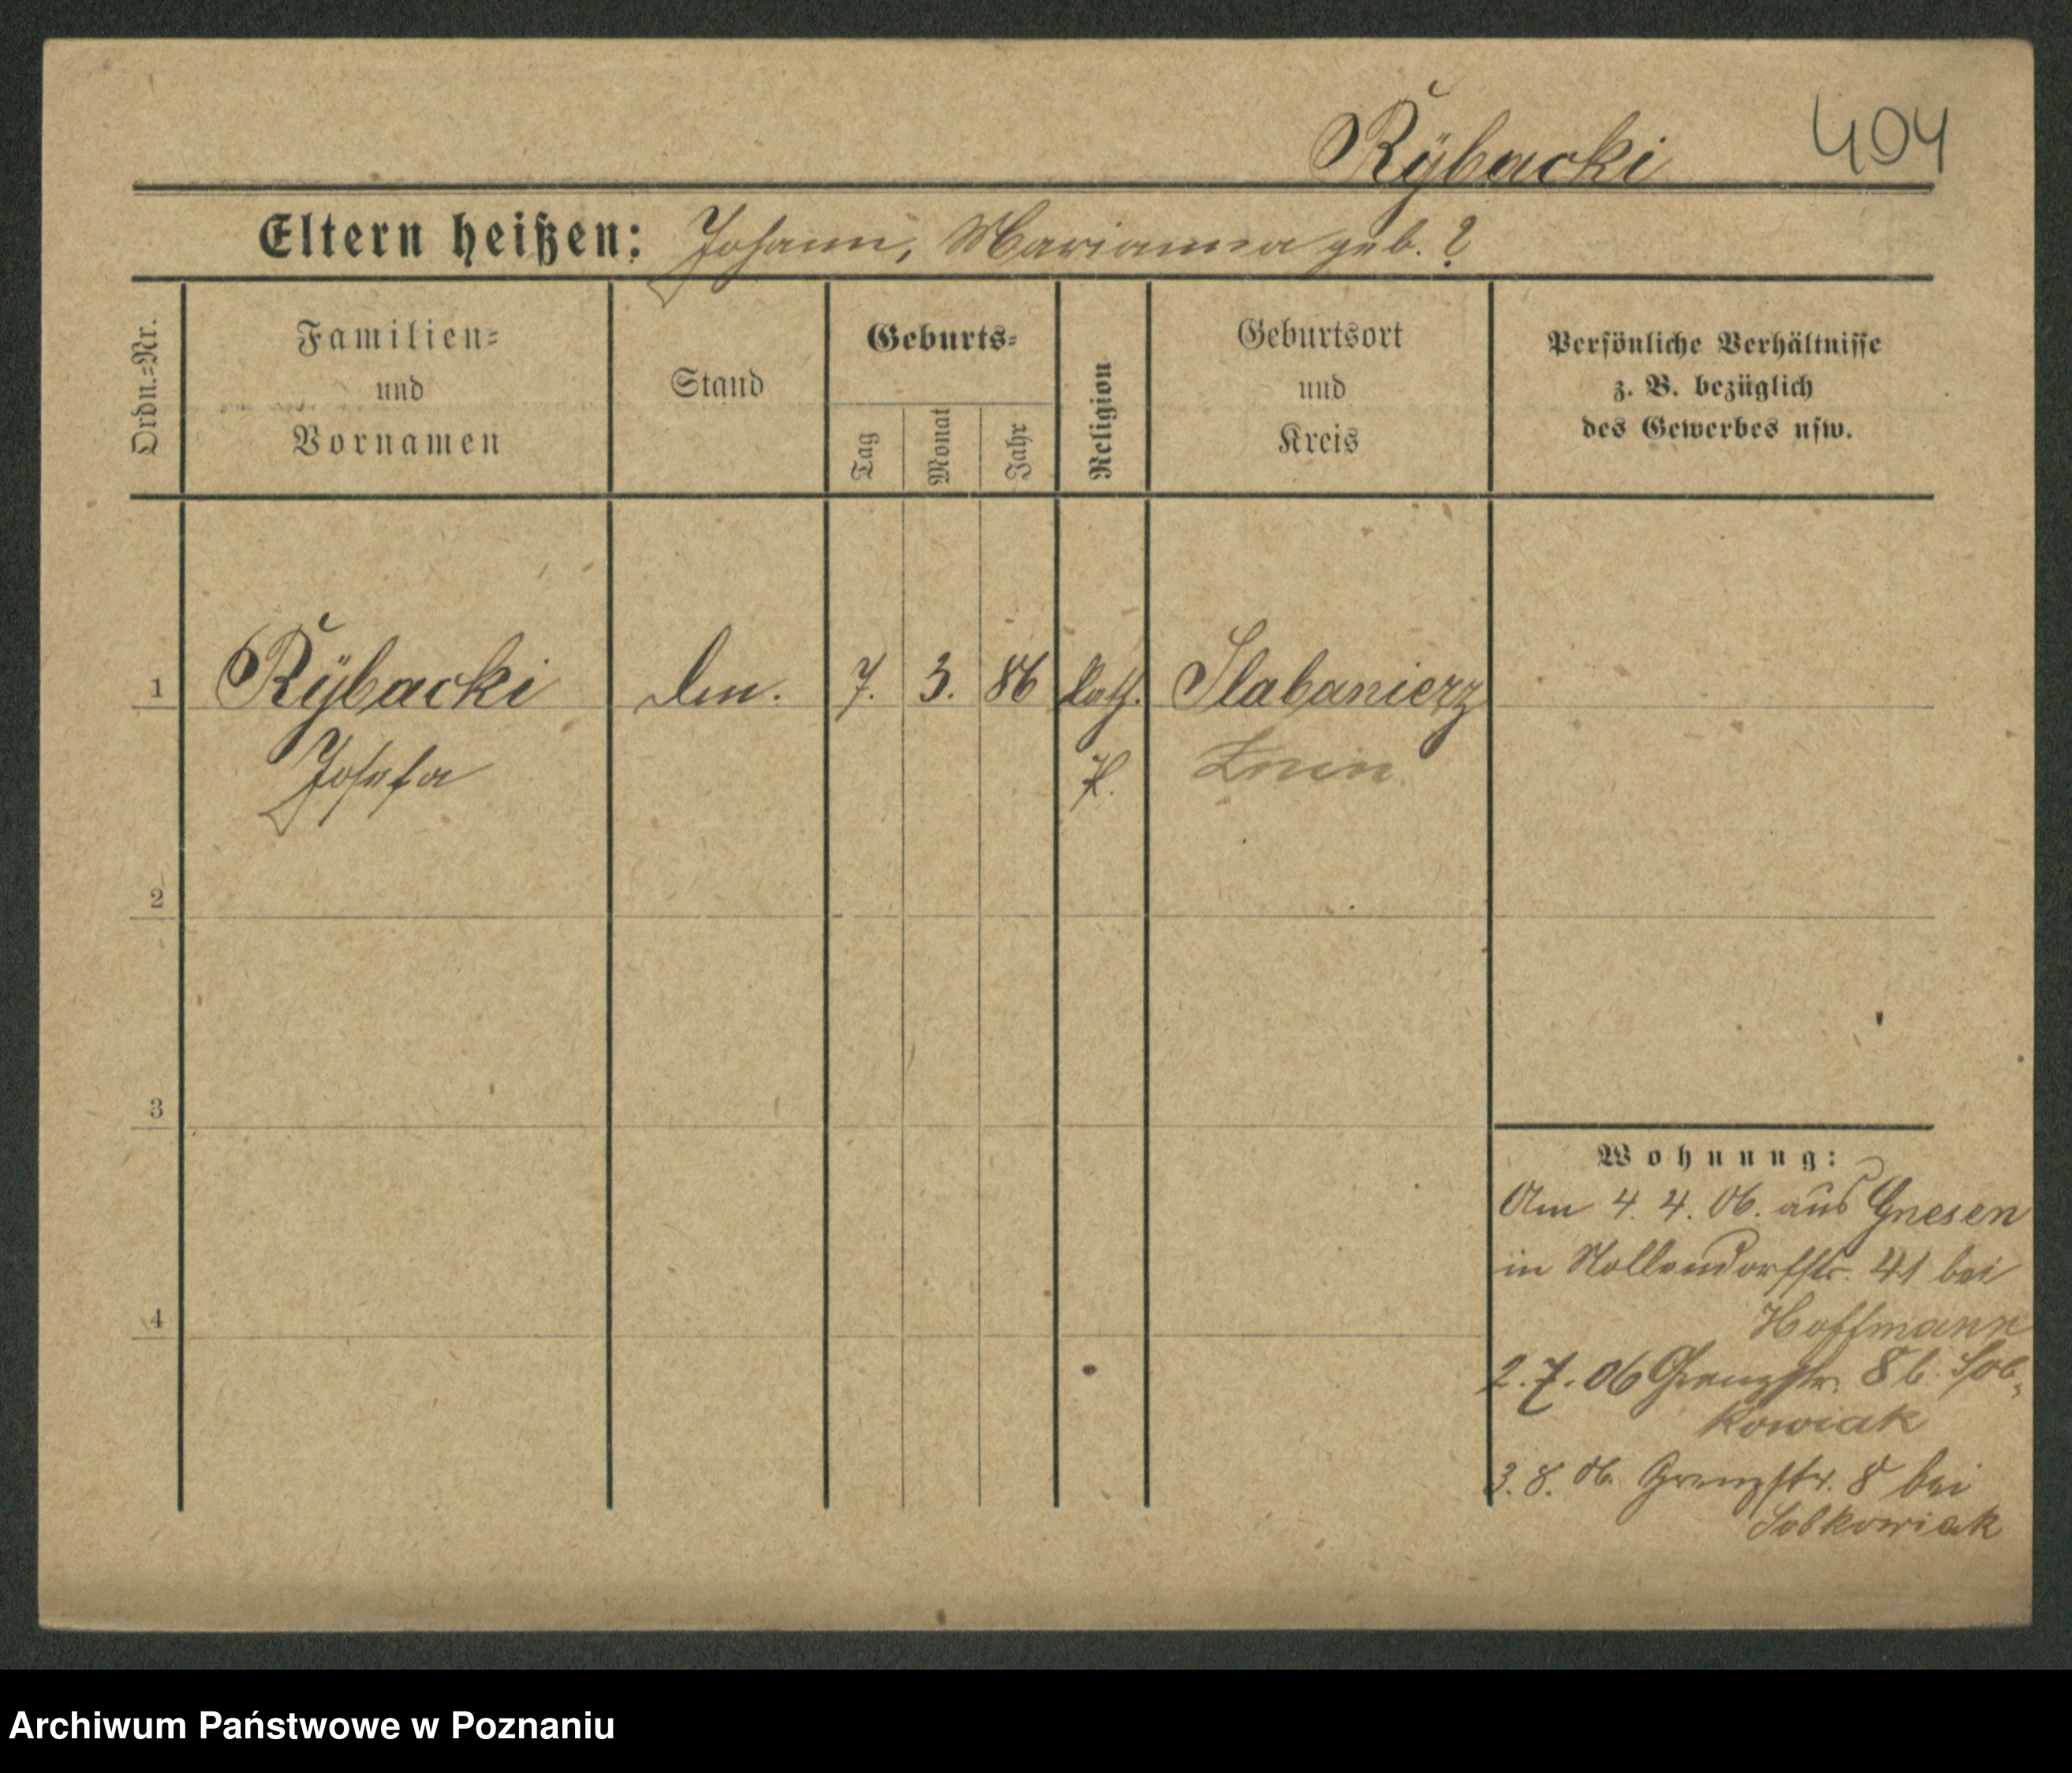 Rÿbacki 404
Eltern heißen: Johann, Marianna geb. ?
Ordn.=Nr.
Familien=
und
Vornamen
Stand
Geburts=
Tag
Monat
Jahr
Religion
Geburtsort
und
Kreis
Persönliche Verhältnisse
z. B. bezüglich
des Gewerbes usw.
1 Rÿbacki 7. 3. 86 kath. Slabanierz
Josefa P. Znin
2
3
4
Wohnung:
Am 4. 4. 06. aus Gnesen
in Nollendorfstr. 41 bei
Hoffmann
2. 7. 06 Grenzstr. 8 b. Sob=
kowiak
3. 8. 06. Grenzstr. 8 bei
Sobkowiak
Archiwum Państwowe w Poznaniu